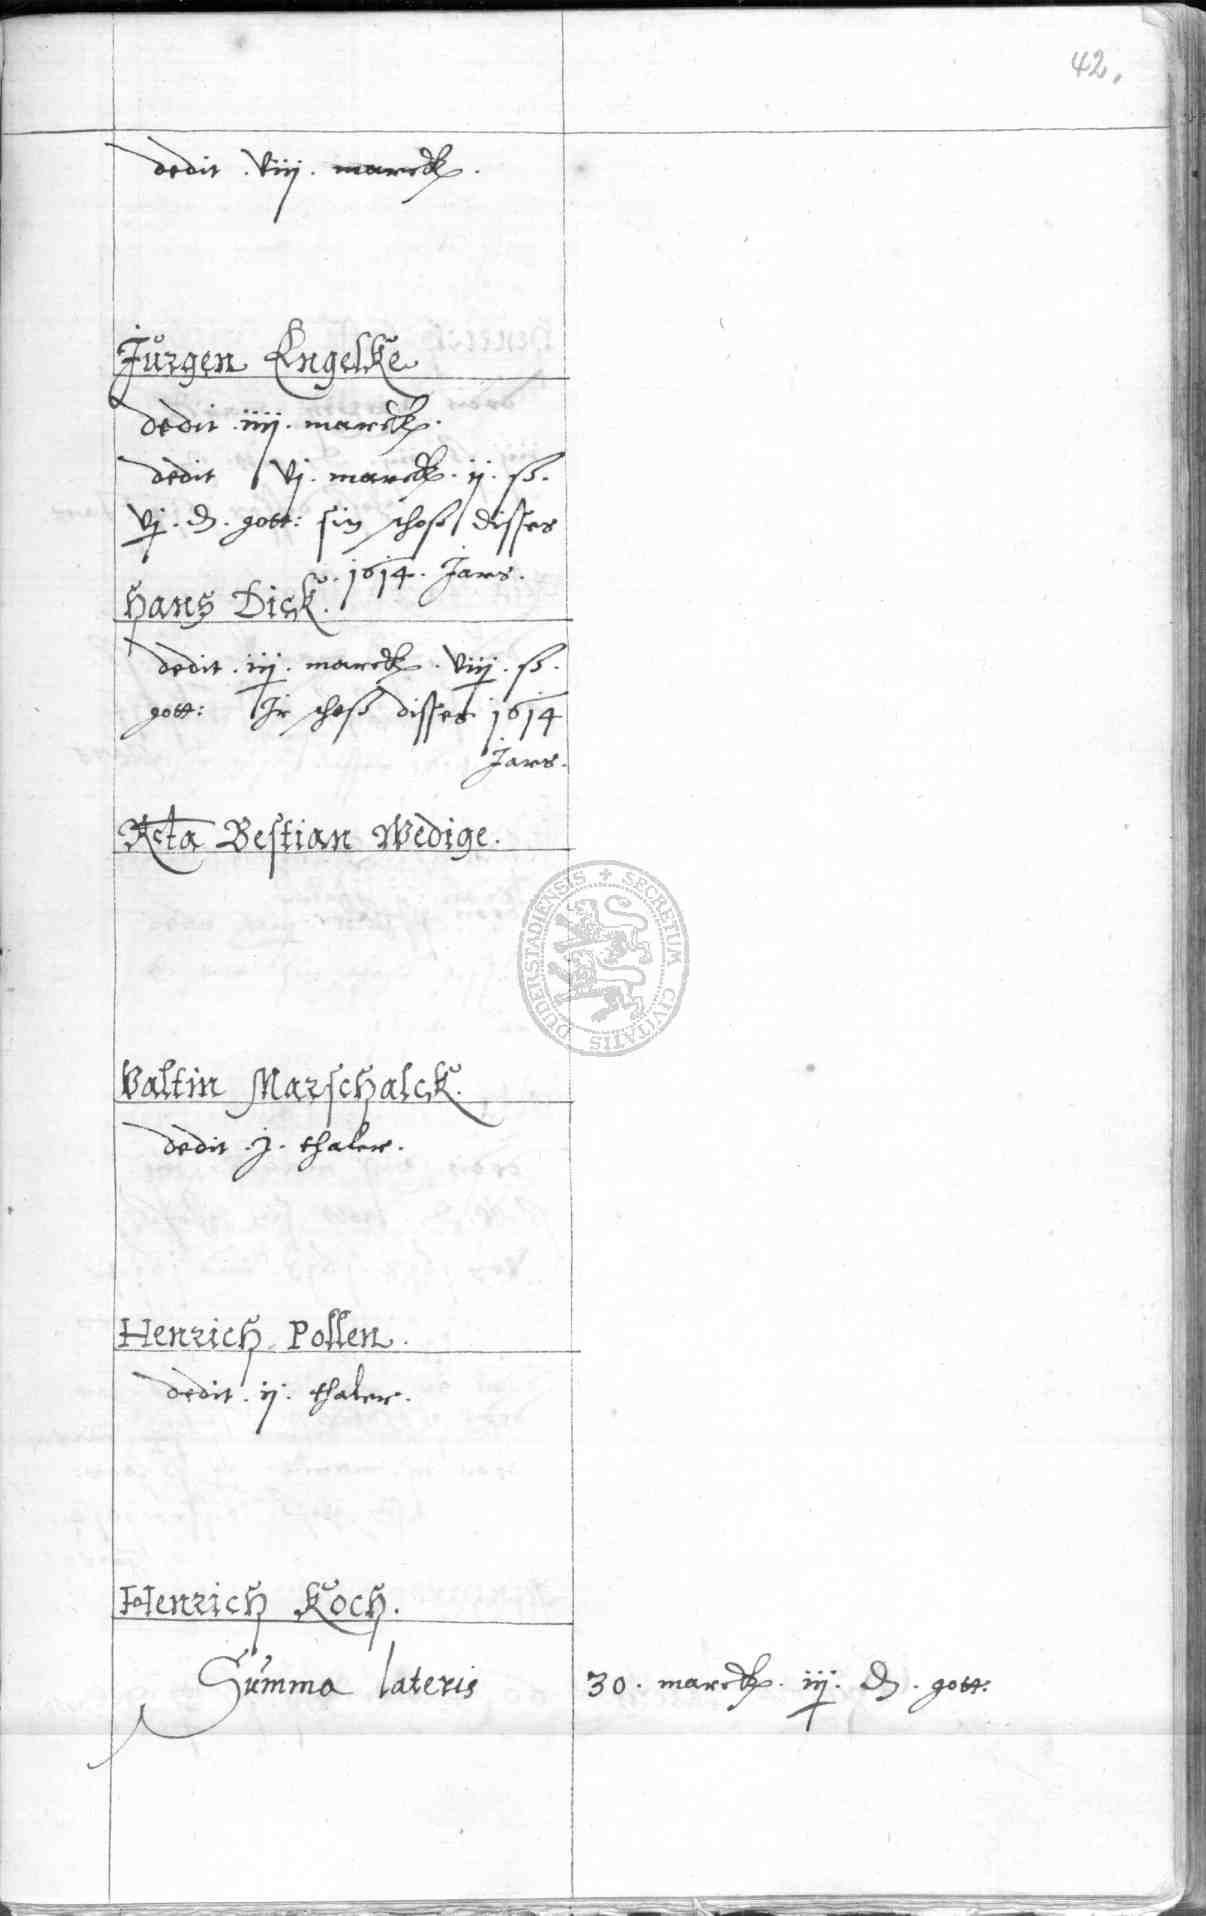 42.
dedit . viij . marck .
Jürgen Engelke
dedit . iiij . marck .
dedit vj . marck . ij . ß .
vj . d . gott: sin schoß disses
. 1614 . Jars .
Hans Dick .
dedit . iij . marck . viij . ß .
gott: Jr schoß disses 1614
Jars .
Rcta Bestian Wedige .
DUDERSTADIENSIS + SECRETUM CIVITATIS
Valtin Marschalck .
dedit . j . thaler .
Henrich Pollen .
dedit . ij . thaler .
Henrich Koch .
Summa lateris 30 . marck . iij . d . gott: